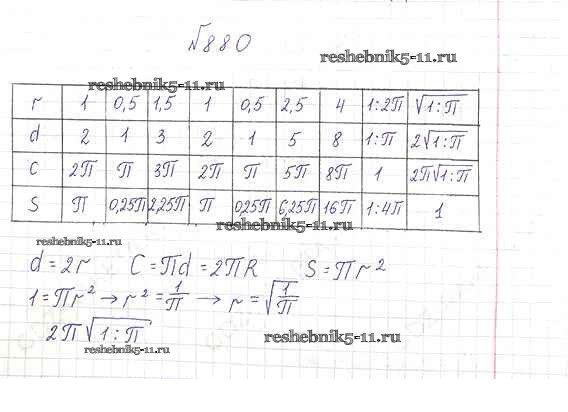 №880
reshebnik5-11.ru
reshebnik5-11.ru
r 1 0,5 1,5 1 0,5 2,5 4 1:2П √1:П
d 2 1 3 2 1 5 8 1:П 2√1:П
C 2П П 3П 2П П 5П 8П 1 2П√1:П
S П 0,25П 2,25П П 0,25П 6,25П 16П 1:4П 1
reshebnik5-11.ru
reshebnik5-11.ru
d = 2r C = Пd = 2ПR S = Пr²
1 = Пr² → r² = 1/П → r = √1/П
2П√1:П
reshebnik5-11.ru
reshebnik5-11.ru